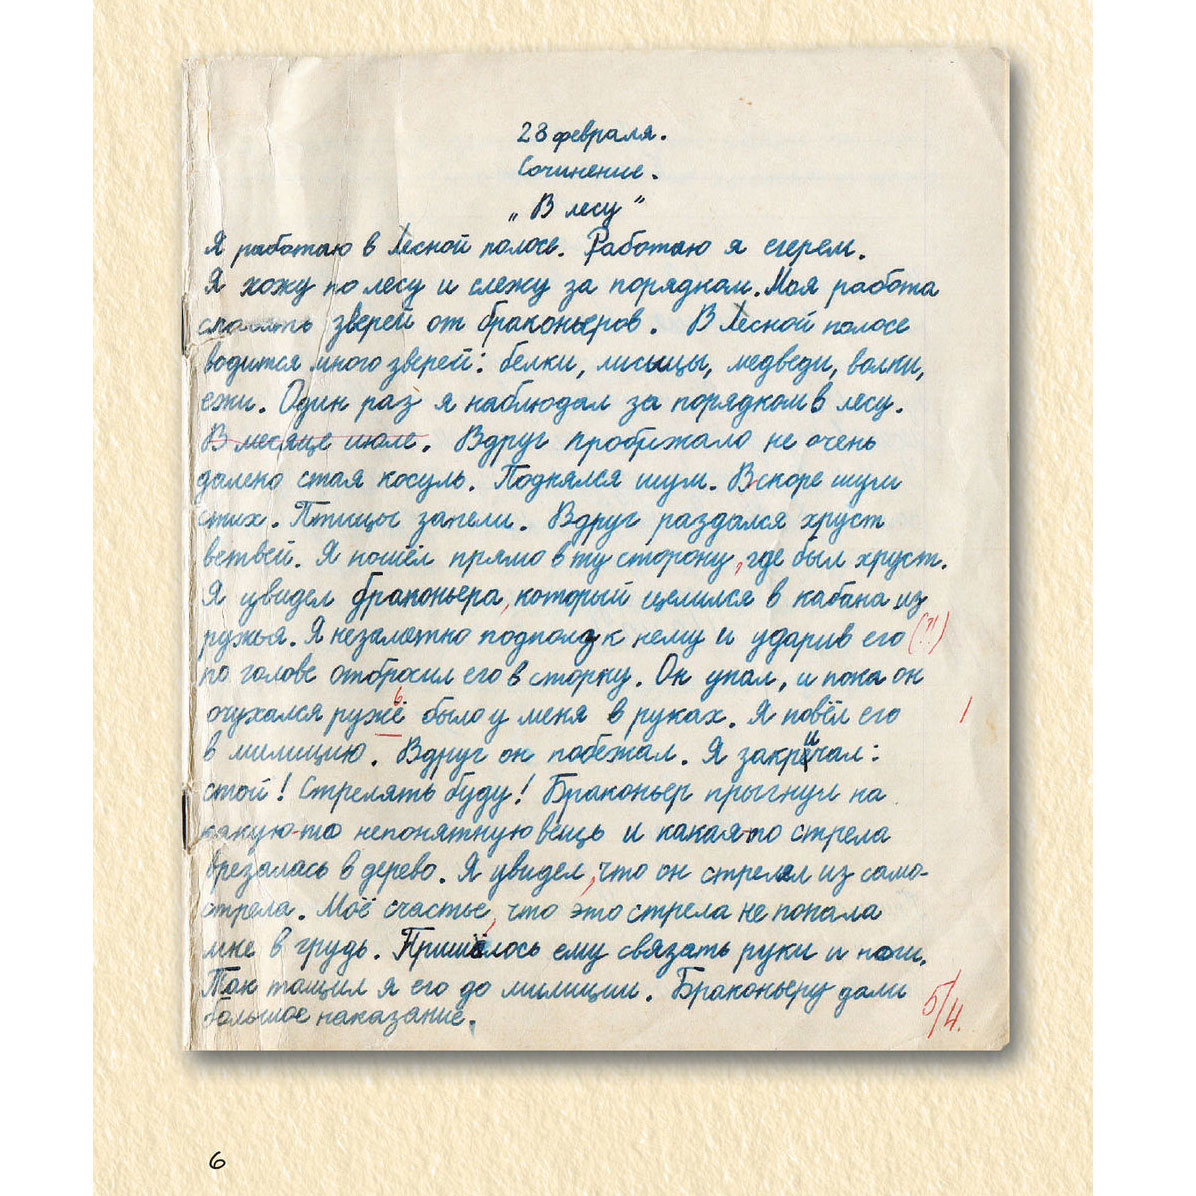 23 февраля.
Сочинение.
„В лесу"
Я работаю в лесной полосе. Работаю я егерем.
Я хожу по лесу и слежу за порядком. Моя работа
спасать зверей от браконьеров. В лесной полосе
водится много зверей: белки, лисицы, медведи, волки,
ежи. Один раз я наблюдал за порядком в лесу.
В месяце июле. Вдруг пробежало не очень
далеко стая косуль. Поднялся шум. Вскоре шум
стих. Птицы запели. Вдруг раздался хруст
ветвей. Я пошёл прямо в ту сторону, где был хруст.
Я увидел браконьера, который целился в кабана из
ружья. Я незаметно подполз к нему и ударив его (?!)
по голове отбросил его в сторку. Он упал, и пока он
очухался ружьё было у меня в руках. Я повёл его |
в милицию. Вдруг он побежал. Я закричал:
стой! Стрелять буду! Браконьер прыгнул на
какую-то непонятную вещь и какая-то стрела
врезалась в дерево. Я увидел, что он стрелял из само-
стрела. Моё счастье, что это стрела не попала
мне в грудь. Пришлось ему связать руки и ноги.
Так тащил я его до милиции. Браконьеру дали
большое наказание.
5/4.
6